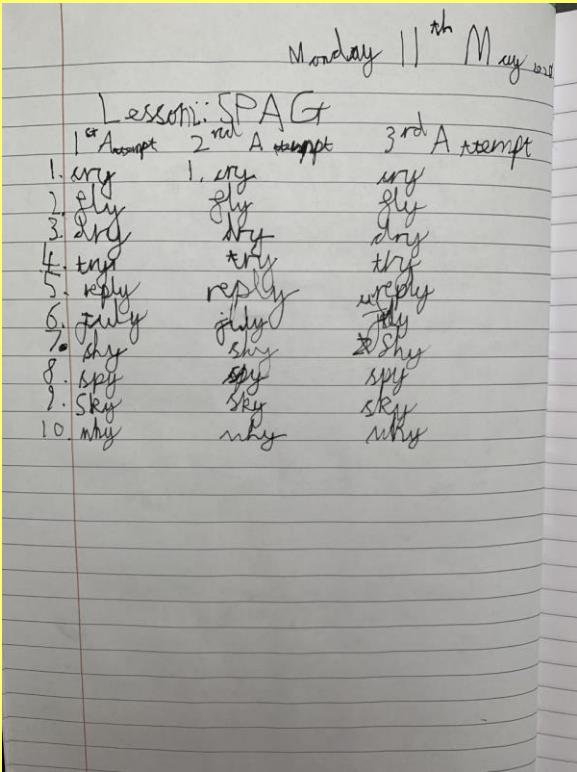 Monday 11th May 2020
Lesson: SPAG
1st Attempt 2nd Attempt 3rd Attempt
1. cry 1. cry cry
2. fly fly fly
3. dry dry dry
4. try try try
5. reply reply reply
6. July july July
7. shy shy shy
8. spy spy spy
9. Sky sky sky
10. why why why